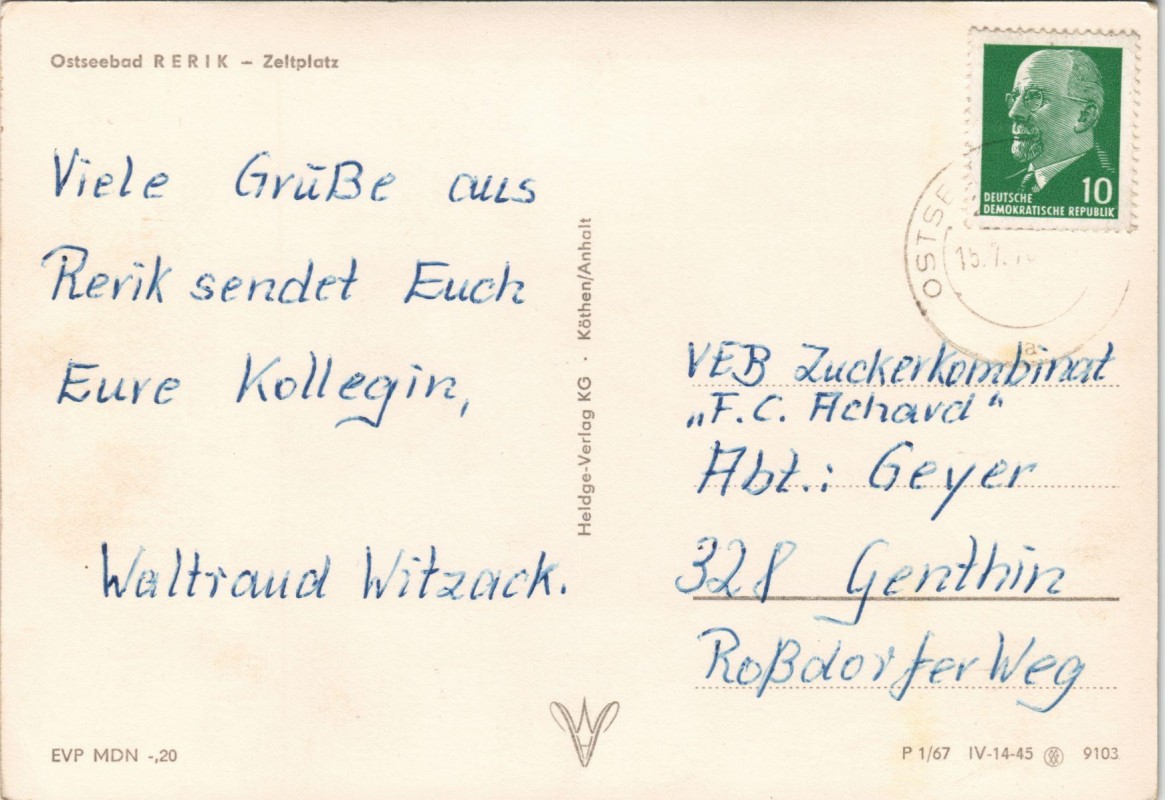 Ostseebad RERIK – Zeltplatz
Viele Grüße aus
Rerik sendet Euch
Eure Kollegin,
Waltraud Witzack.
EVP MDN -,20
Heldge-Verlag KG · Köthen/Anhalt
DEUTSCHE
DEMOKRATISCHE REPUBLIK
10
VEB Zuckerkombinat
„F.C. Achard“
Abt.: Geyer
328 Genthin
Roßdorfer Weg
P 1/67 IV-14-45 9103